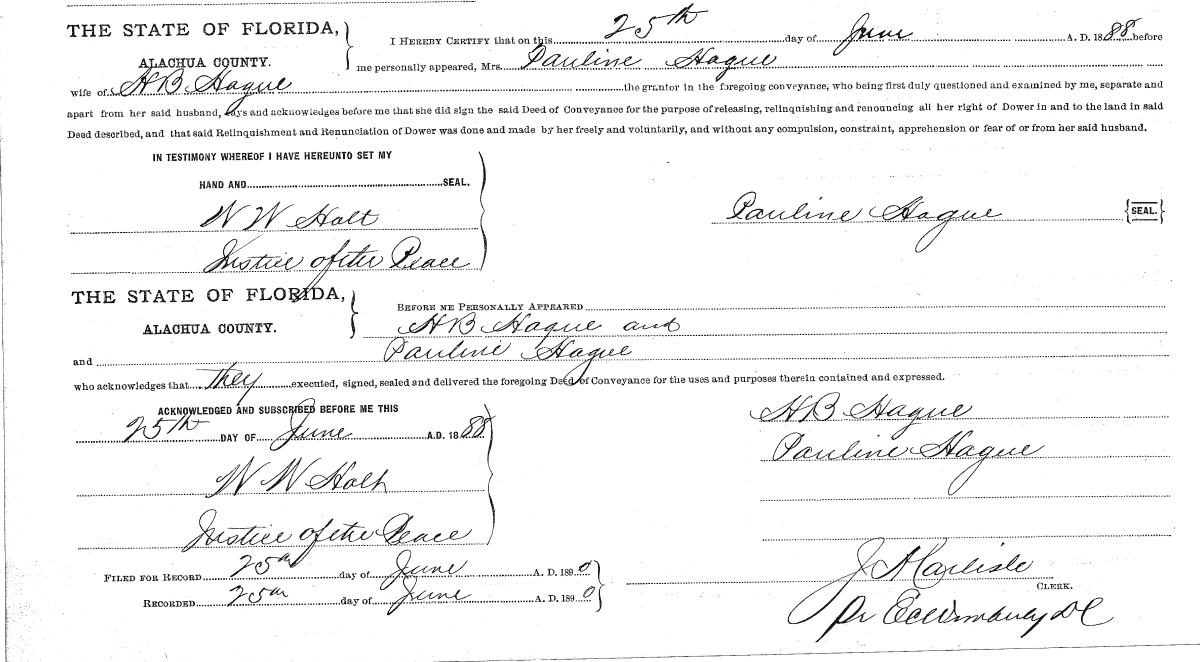 THE STATE OF FLORIDA,
ALACHUA COUNTY.
I HEREBY CERTIFY that on this 25th day of June A. D. 1888 before
me personally appeared, Mrs. Pauline Hague
wife of H B Hague the grantor in the foregoing conveyance, who being first duly questioned and examined by me, separate and
apart from her said husband, says and acknowledges before me that she did sign the said Deed of Conveyance for the purpose of releasing, relinquishing and renouncing all her right of Dower in and to the land in said
Deed described, and that said Relinquishment and Renunciation of Dower was done and made by her freely and voluntarily, and without any compulsion, constraint, apprehension or fear of or from her said husband.
IN TESTIMONY WHEREOF I HAVE HEREUNTO SET MY
HAND AND SEAL.
W W Holt
Justice of the Peace
Pauline Hague {SEAL.}
THE STATE OF FLORIDA,
ALACHUA COUNTY.
BEFORE ME PERSONALLY APPEARED
H B Hague and
and Pauline Hague
who acknowledges that they executed, signed, sealed and delivered the foregoing Deed of Conveyance for the uses and purposes therein contained and expressed.
ACKNOWLEDGED AND SUBSCRIBED BEFORE ME THIS
25th DAY OF June A.D. 1888
W W Holt
Justice of the Peace
H B Hague
Pauline Hague
FILED FOR RECORD 25th day of June A. D. 1890
RECORDED 25th day of June A. D. 1890
J A Carlisle
CLERK.
Pr DC